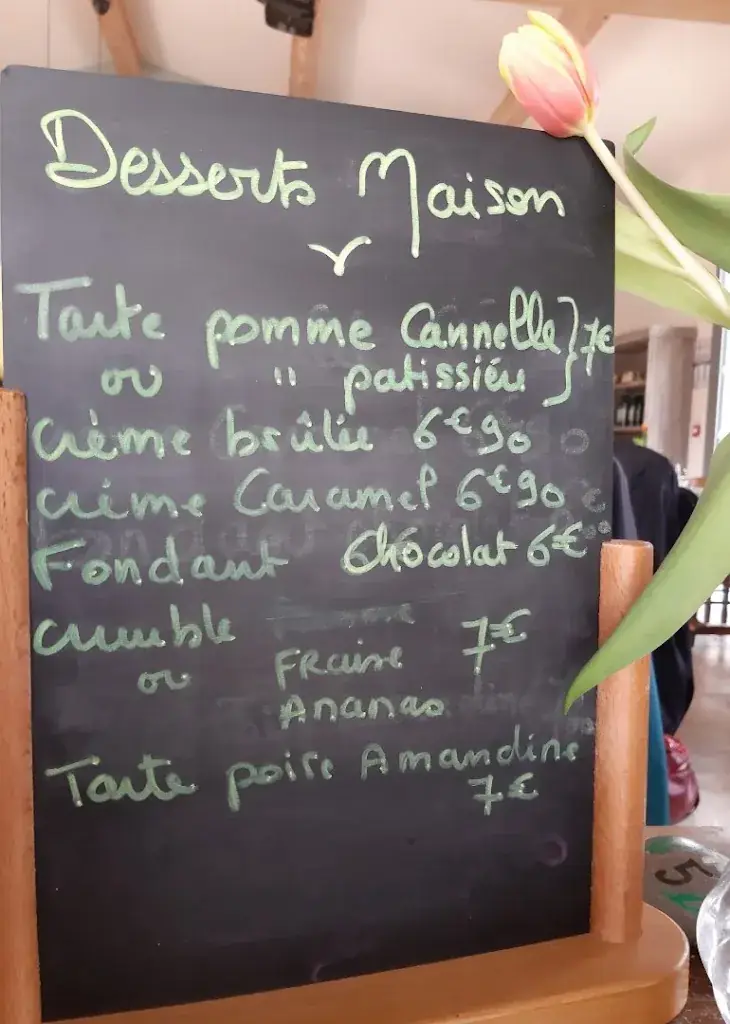 Desserts Maison
Tarte pomme Cannelle } 7€
ou " patissière }
crème brûlée 6€90
crème Caramel 6€90
Fondant Chocolat 6€
crumble 7€
ou Fraise
Ananas
Tarte poire Amandine
7€
5